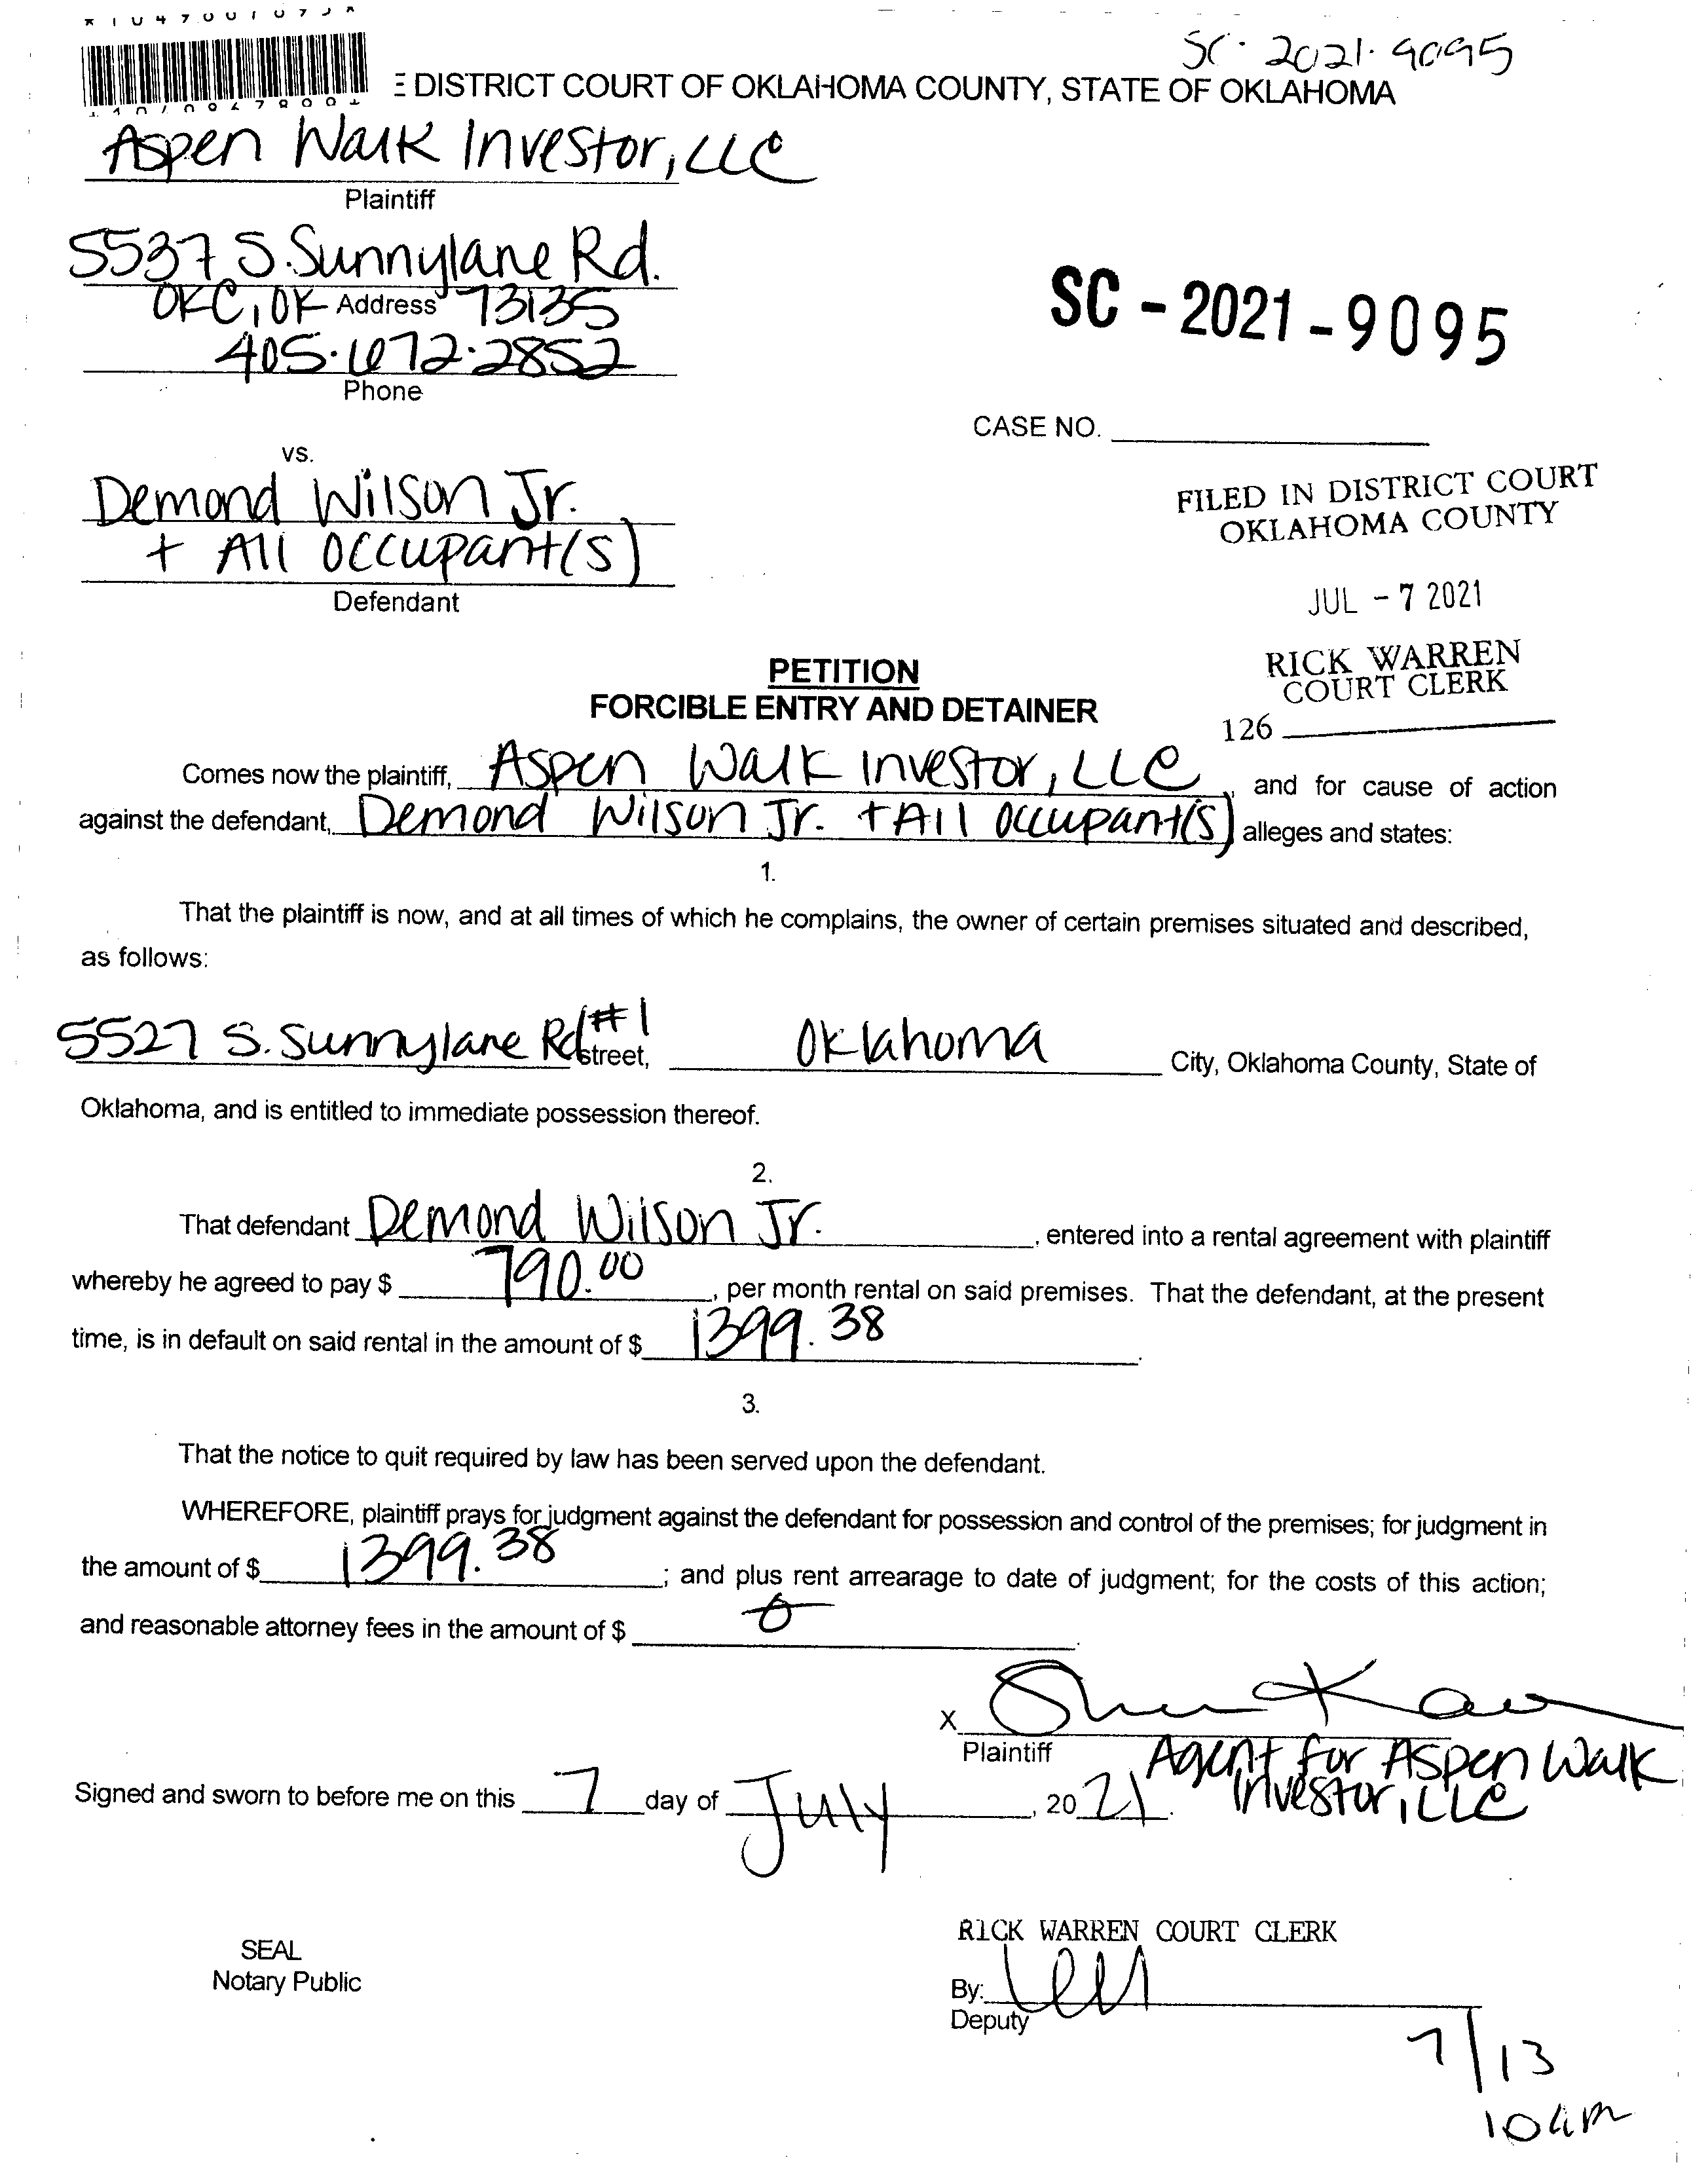 SC. 2021. 9095
E DISTRICT COURT OF OKLAHOMA COUNTY, STATE OF OKLAHOMA
Aspen Walk Investor, LLC
Plaintiff
5537 S. Sunnylane Rd.
OKC, OK Address 73135
405.672.2852
Phone
SC - 2021 - 9095
CASE NO.
vs.
Demond Wilson Jr.
+ All Occupant(s)
Defendant
FILED IN DISTRICT COURT
OKLAHOMA COUNTY
JUL - 7 2021
RICK WARREN
COURT CLERK
126
PETITION
FORCIBLE ENTRY AND DETAINER
Comes now the plaintiff, Aspen Walk Investor, LLC, and for cause of action
against the defendant, Demond Wilson Jr. + All Occupant(s) alleges and states:
1.
That the plaintiff is now, and at all times of which he complains, the owner of certain premises situated and described,
as follows:
5527 S. Sunnylane Rd #1 street, Oklahoma City, Oklahoma County, State of
Oklahoma, and is entitled to immediate possession thereof.
2.
That defendant Demond Wilson Jr., entered into a rental agreement with plaintiff
whereby he agreed to pay $ 790.00, per month rental on said premises. That the defendant, at the present
time, is in default on said rental in the amount of $ 1399.38.
3.
That the notice to quit required by law has been served upon the defendant.
WHEREFORE, plaintiff prays for judgment against the defendant for possession and control of the premises; for judgment in
the amount of $ 1399.38; and plus rent arrearage to date of judgment; for the costs of this action;
and reasonable attorney fees in the amount of $ 0.
X
Plaintiff
Agent for Aspen Walk
Investor, LLC
Signed and sworn to before me on this 7 day of July, 2021.
SEAL
Notary Public
RICK WARREN COURT CLERK
By:
Deputy
7/13
10am